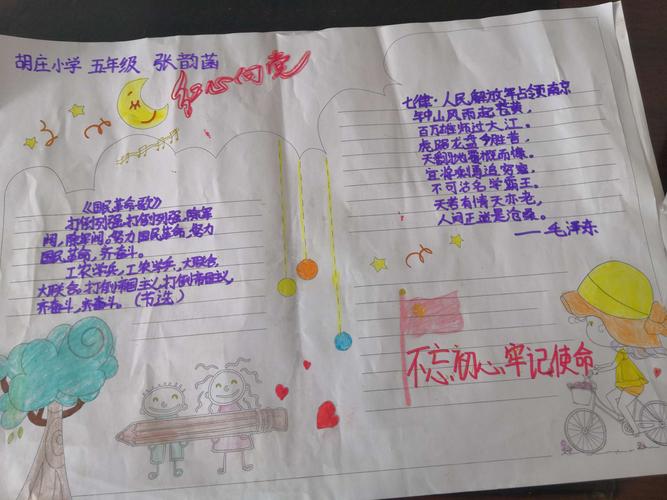 胡庄小学 五年级 张韵菡
红心向党
《国民革命歌》
打倒列强,打倒列强,除军
阀,除军阀。努力国民革命,努力
国民革命,齐奋斗。
工农学兵,工农学兵,大联合,
大联合。打倒帝国主义,打倒帝国主义,
齐奋斗,齐奋斗。(节选)
七律·人民解放军占领南京
钟山风雨起苍黄,
百万雄师过大江。
虎踞龙盘今胜昔,
天翻地覆慨而慷。
宜将剩勇追穷寇,
不可沽名学霸王。
天若有情天亦老,
人间正道是沧桑。
——毛泽东
不忘初心,牢记使命